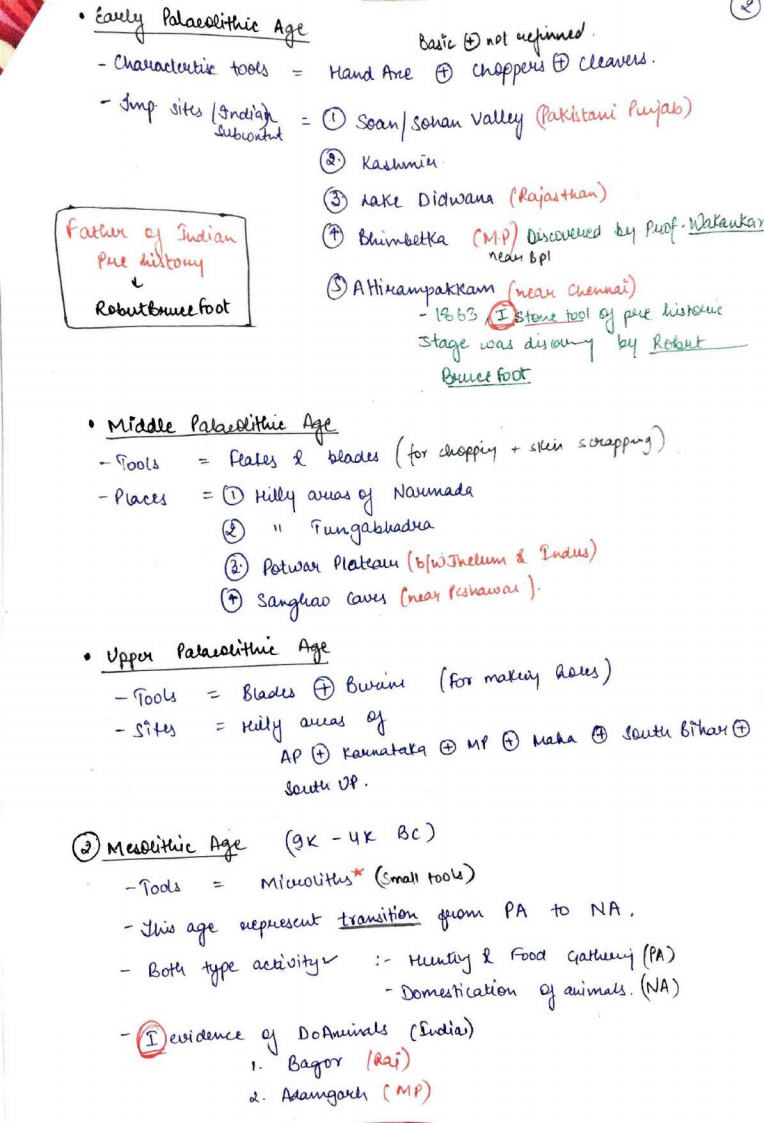 2
• Early Palaeolithic Age
Basic ⊕ not refinned.
- Charactertise tools = Hand Axe ⊕ choppers ⊕ cleavers.
- Imp. sites / Indian Subcontnt = ① Soan/Sohan Valley (Pakistani Punjab)
② Kashmir
③ Lake Didwana (Rajasthan)
④ Bhimbetka (MP) Discovered by Prof. Wakankar
near Bpl
⑤ Athirampakkam (near Chennai)
- 1863, I stone tool of pre historic
stage was discovry by Robert
Bruce Foot
Father of Indian
Pre history
↓
Robert Bruce Foot
• Middle Palaeolithic Age
- Tools = Flakes & blades (for choppiy + skin scrapping)
- Places = ① Hilly areas of Narmada
② " Tungabhadra
③ Potwar Plateau (b/w Jhelum & Indus)
④ Sanghao caves (near Peshawar).
• Upper Palaeolithic Age
- Tools = Blades ⊕ Burins (for makiy holes)
- Sites = Hilly areas of
AP ⊕ Karnataka ⊕ MP ⊕ Maha ⊕ South Bihar ⊕
South UP.
② Mesolithic Age (9K - 4K BC)
- Tools = Microliths* (small tools)
- This age represent transition from PA to NA.
- Both type activity :- Huntiy & Food Gatheriy (PA)
- Domestication of animals. (NA)
- I evidence of DoAnimals (India)
1. Bagor (Raj)
2. Adamgarh (MP)